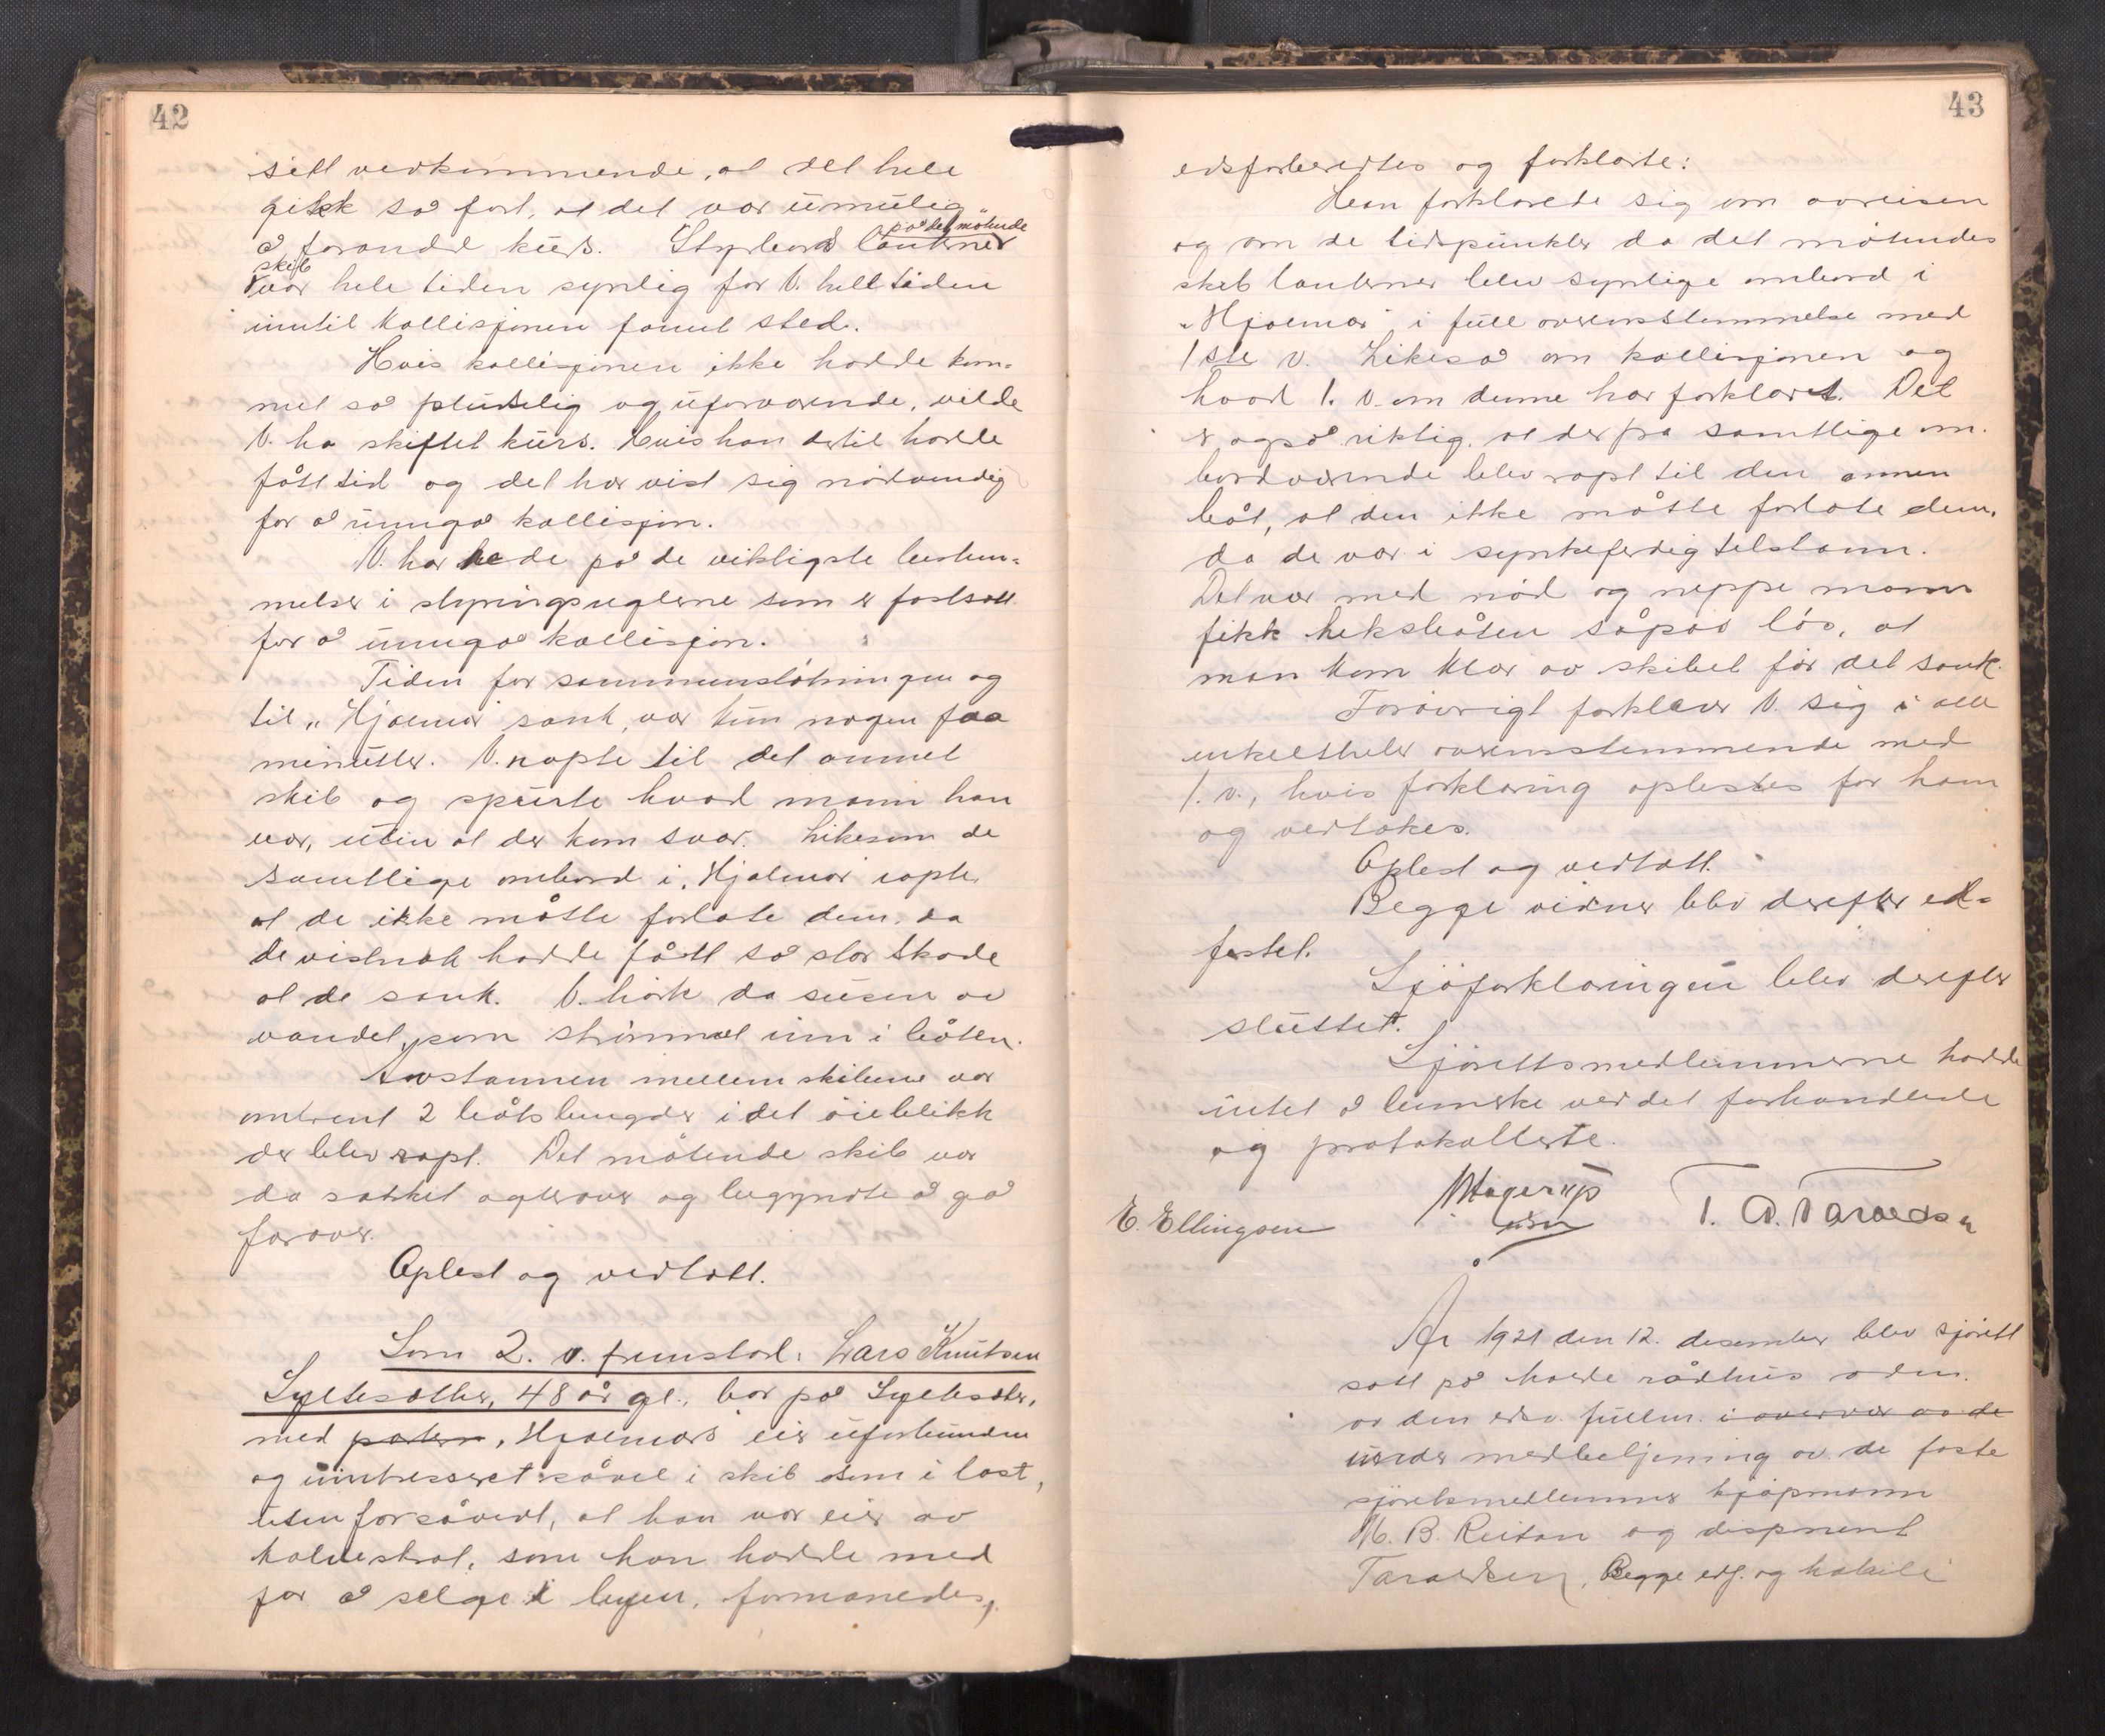 42
sitt vedkommende, at det hele
gikk så fort, at det var umulig
å forandre kurs. Styrbord lanterner på det møtende
skib var hele tiden synlig for V. hele tiden
inntil kollisjonen fannt sted.
Hvis kollisjonen ikke hadde kom-
met så pludselig og uforvarende, vilde
V. ha skiftet kurs. hvis han dertil hadde
fått tid og det har vist sig nødvendig
for å unngå kollisjon.
V. har rede på de viktigste bestem-
melser i styringsreglerne som er fastsatt
for å unngå kollisjon.
Tiden for sammenstøtningen og
til "Hjalmar" sank, var kun nogen faa
minutter. V. ropte til det annet
skib og spurte hvad mann han
var, uten at der kom svar. Likesom de
samtlige ombord i "Hjalmar" ropte,
at de ikke måtte forlate dem, da
de vistnok hadde fått så stor skade
at de sank. V. hørte da susen av
vandet, som strømmet inn i båten.
Avstannen mellem skibene var
omtrent 2 båtslengder i det øieblikk
der blev ropt. Det møtende skib var
da sakket agterover og begyndte å gå
forover.
Oplest og vedtatt.
Som 2. v. fremstod: Lars Knutsen
Syltesæther, 48 år gl., bor på Syltesæter,
med "Hjalmars" eier uforbunden
og uintresseret såvel i skib som i last,
uten forsåvidt, at han var eier av
kalveskrot, som han hadde med
for å selge i byen, formanedes,
43
edsforberedtes og forklarte:
Han forklarede sig om avreisen
og om de tidspunkter da det møtendes
skib lanterner blev synlige ombord i
"Hjalmar" i full overensstemmelse med
1ste v. Likeså om kollisjonen og
hvad 1. v. om denne har forklaret. Det
er også riktig, at der fra samtlige om-
bordværende blev ropt til den annen
båt, at den ikke måtte forlate dem,
da de var i synkeferdig tilstann.
Det var med nød og neppe mann
fikk heksbåten såpas løs, at
man kom klar av skibet før det sank.
Forøvrigt forklarer V. sig i alle
enkeltheter overensstemmende med
1. v., hvis forklaring oplestes for ham
og vedtokes.
Oplest og vedtatt.
Begge vidner blev derefter ed-
festet.
Sjøforklaringen blev derefter
sluttet.
Sjørettsmedlemmerne hadde
intet å bemerke ved det forhandlede
og protokollerte.
E. Ellingsen Hagerup T. A. Taraldsen
År 1921 den 12. desember blev sjørett
satt på Molde rådhus og adm.
av den edsv. fullm. i overvær av de
under medbetjening av de faste
sjøretsmedlemmer kjøpmann
M. B. Reitan og disponent
Taraldsen, Begge edf. og habile